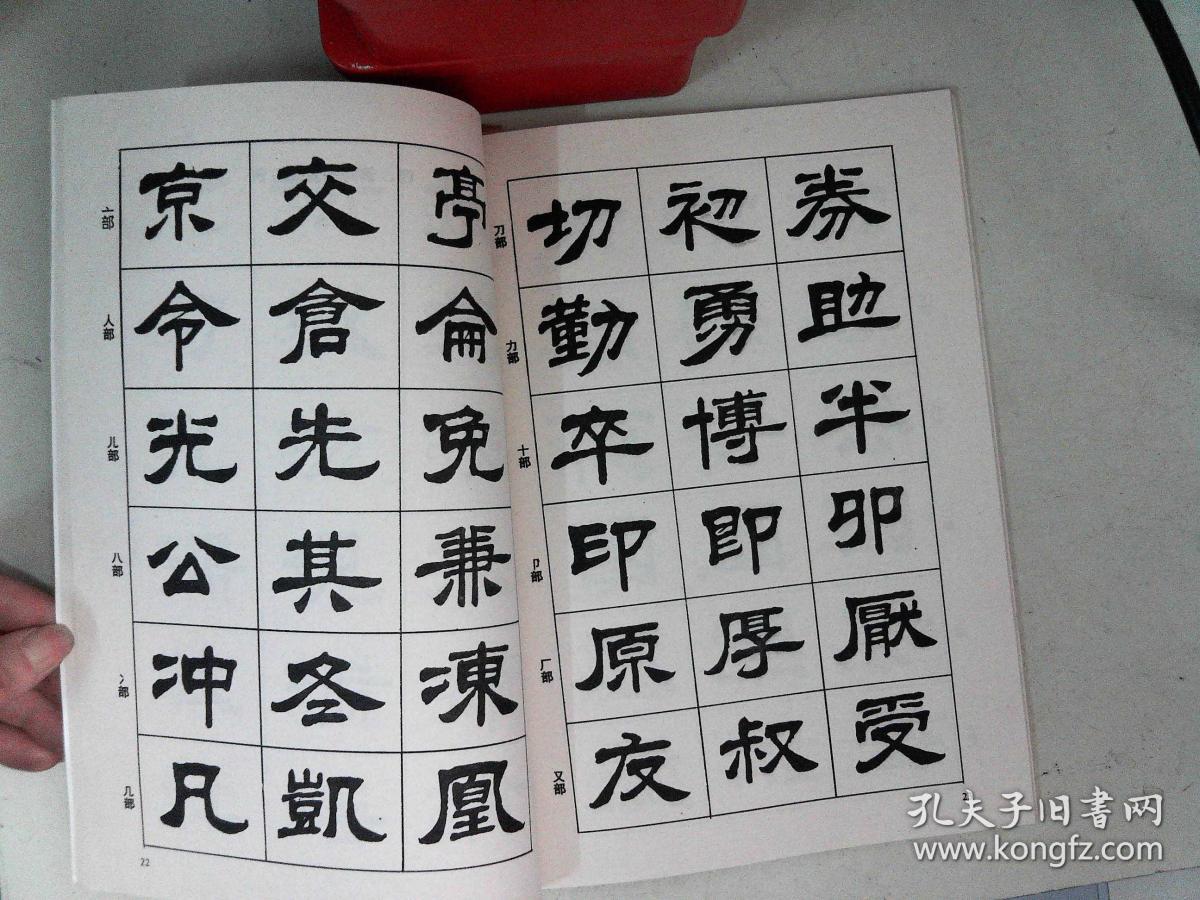 亠部 京 交 亭
人部 令 倉 侖
儿部 光 先 免
八部 公 其 兼
冫部 冲 冬 凍
几部 凡 凱 凰
22
刀部 切 初 券
力部 勤 勇 助
十部 卒 博 半
卩部 印 即 卯
厂部 原 厚 厭
又部 友 叔 受
2
孔夫子旧书网
www.kongfz.com